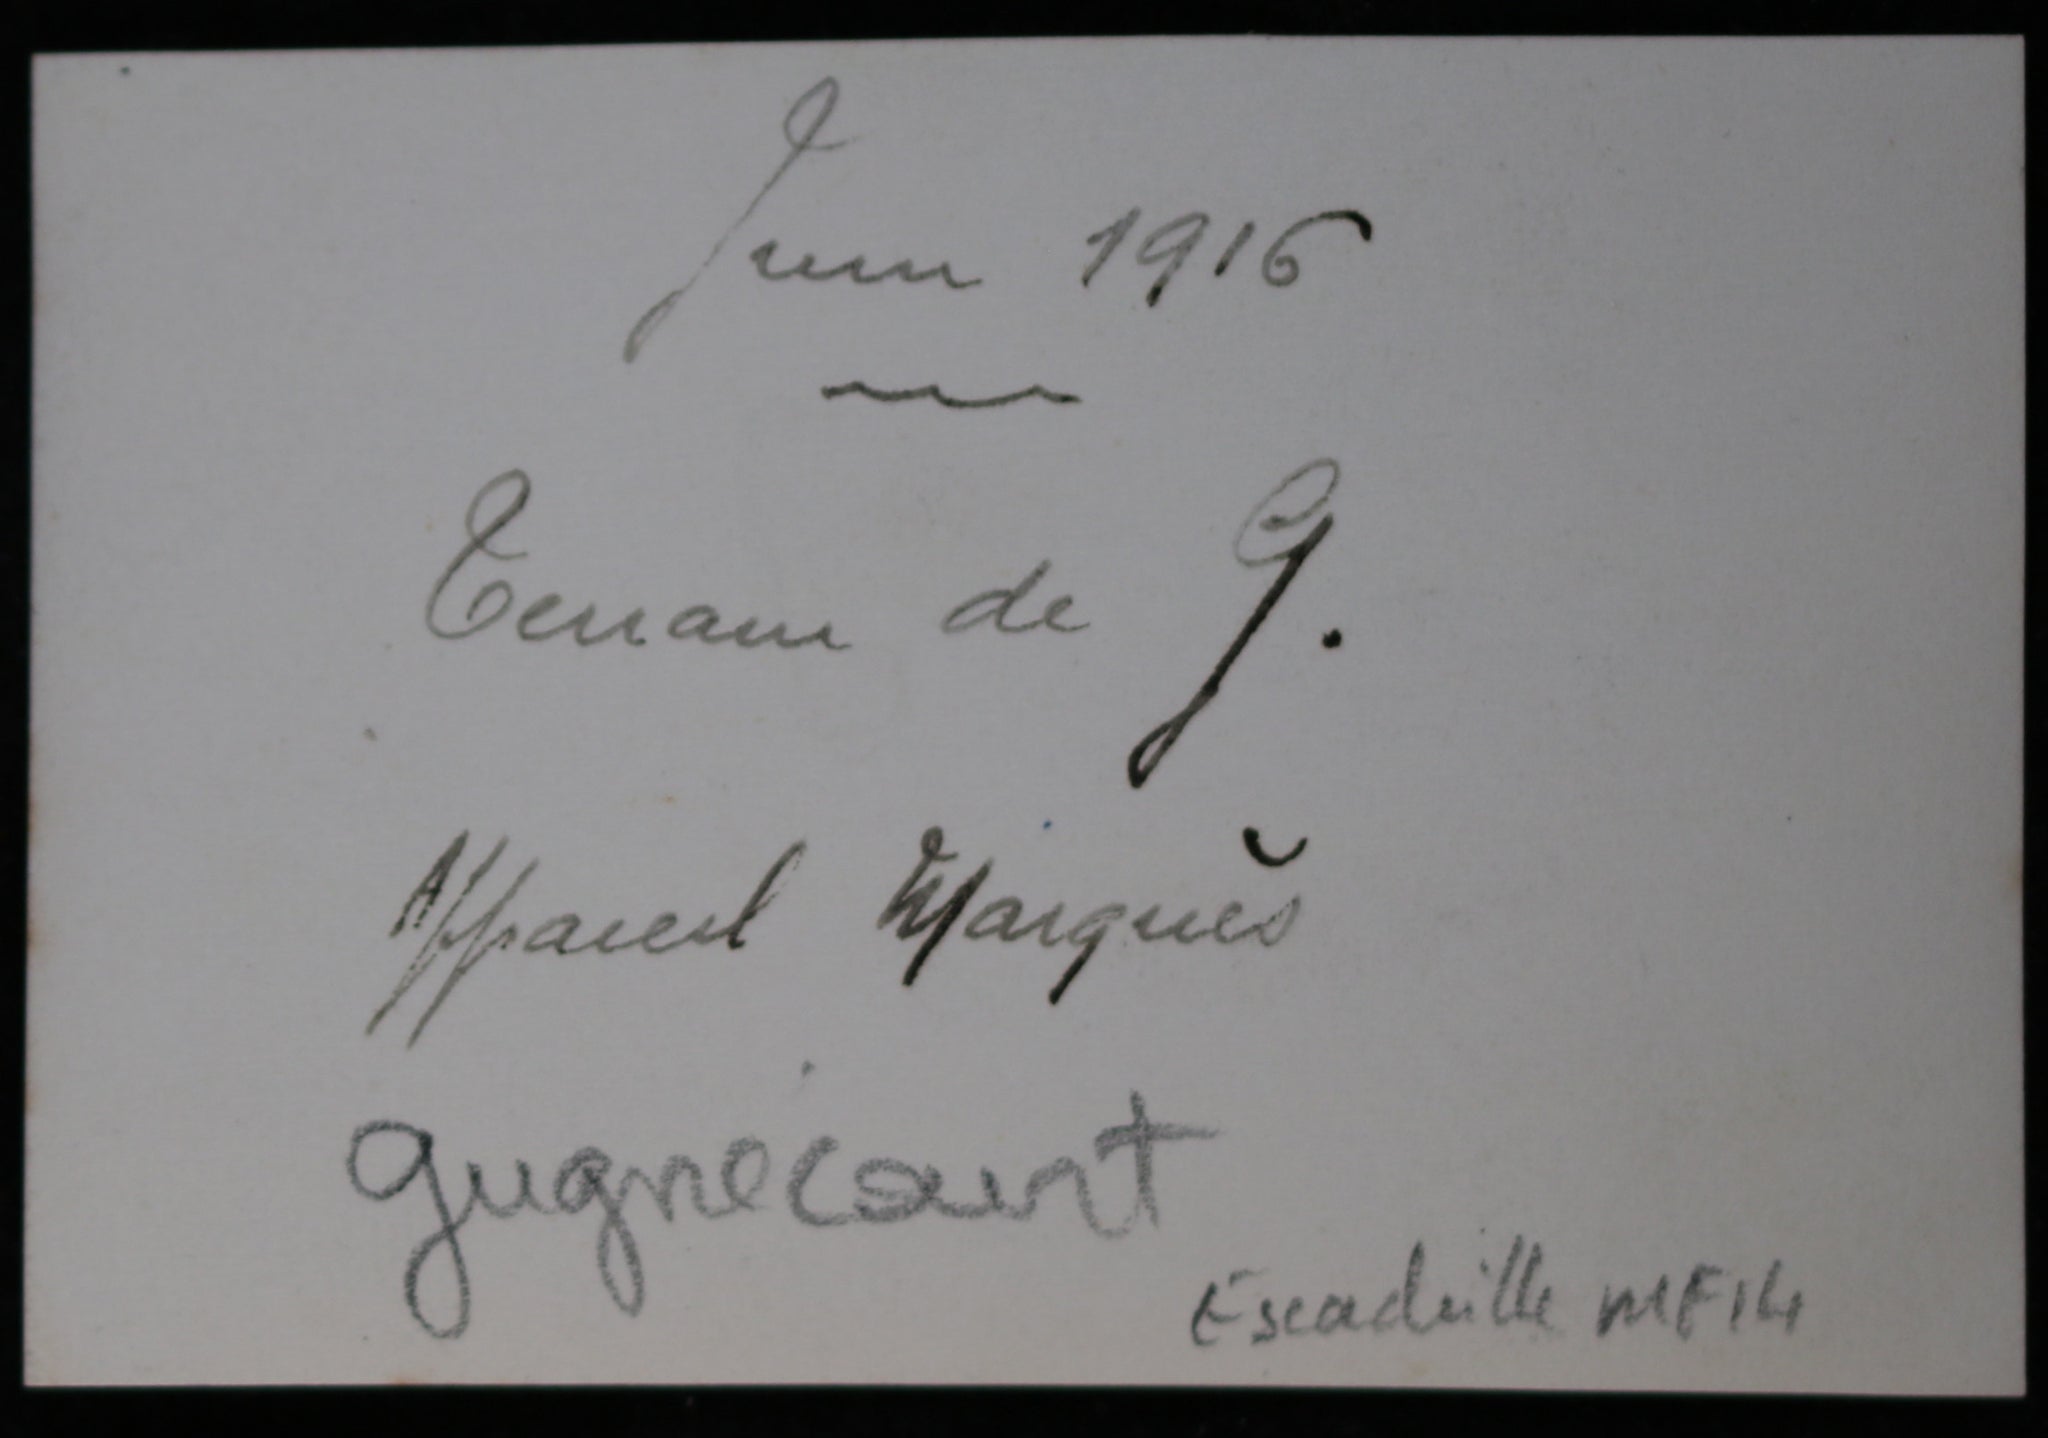 Juin 1916
Terrain de G.
Appareil Marquès
Gugnécourt
Escadrille MF14